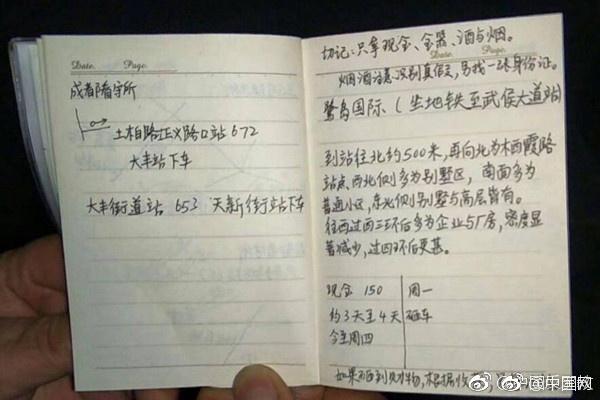 Date. Page.
成都看守所
土柏路正义路口站 672
大丰站下车
大丰街道站 653 天新街站下车
切记:只拿现金、金器、酒与烟。
Date. Page.
烟酒注意识别真假,另找一张身份证。
鹭岛国际(坐地铁至武侯大道站)
到站往北约500米,再向北为木西霞路
站点、西北侧多为别墅区,南面多为
普通小区,东北侧别墅与高层皆有。
往西过西三环后多为企业与厂房,密度显
著减少,过四环后更甚。
现金 150 周一
约3天至4天 砸车
今至周四
如果
中国网